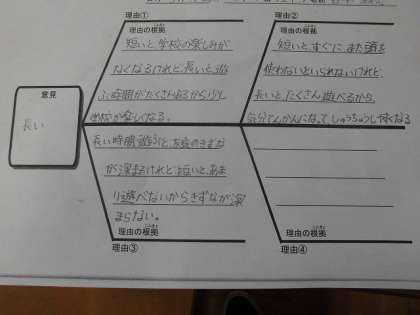 理由①
理由の根拠
短いと、学校の楽しみが
なくなるけれど、長いと、遊
ぶ時間がたくさんあるから少し
学校が楽しくなる。
理由②
理由の根拠
短いと、すぐに、また頭を
使わないといられないけれど、
長いと、たくさん遊べるから、
気分てんかんになって、しゅうちゅうし
意見
長い
長い時間遊ぶと、友達のきずな
が深まるけれど、短いと、あま
り遊べないからきずなが深
まらない。
理由の根拠
理由③
理由の根拠
理由④